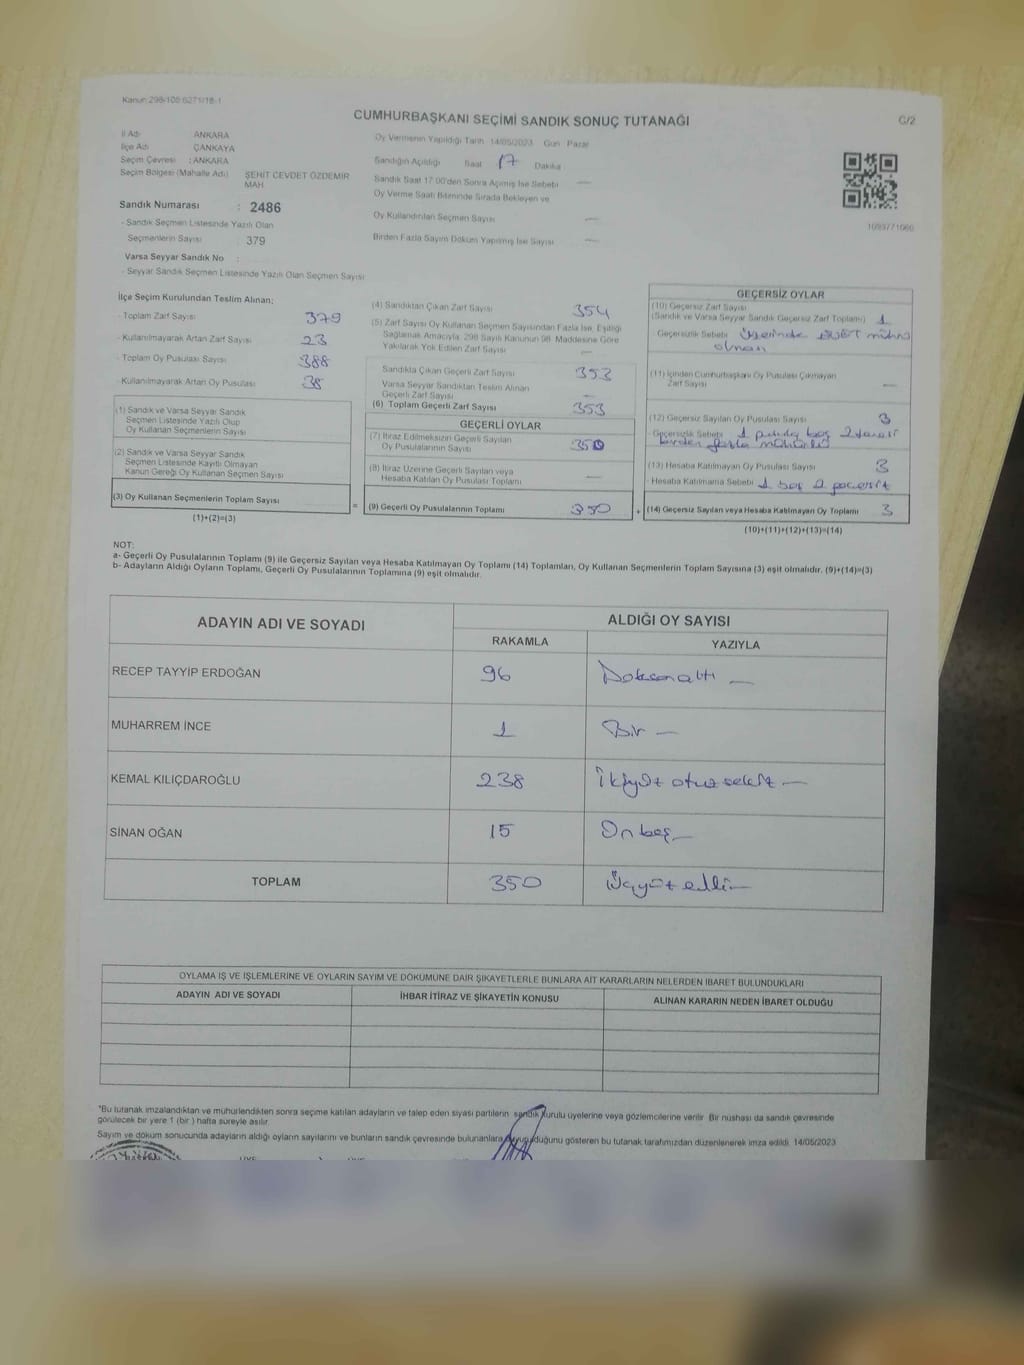 Kanun 298/108 6271/18-1
CUMHURBAŞKANI SEÇİMİ SANDIK SONUÇ TUTANAĞI
C/2
İl Adı ANKARA
İlçe Adı ÇANKAYA
Seçim Çevresi : ANKARA
Seçim Bölgesi (Mahalle Adı) ŞEHİT CEVDET ÖZDEMİR
MAH
Sandık Numarası : 2486
- Sandık Seçmen Listesinde Yazılı Olan
Seçmenlerin Sayısı 379
Varsa Seyyar Sandık No :
- Seyyar Sandık Seçmen Listesinde Yazılı Olan Seçmen Sayısı
Oy Vermenin Yapıldığı Tarih 14/05/2023 Gün Pazar
Sandığın Açıldığı Saat 17 Dakika
Sandık Saat 17:00'den Sonra Açılmış İse Sebebi —
Oy Verme Saati Bitiminde Sırada Bekleyen ve
Oy Kullandırılan Seçmen Sayısı —
Birden Fazla Sayım Döküm Yapılmış İse Sayısı —
1093771066
İlçe Seçim Kurulundan Teslim Alınan;
- Toplam Zarf Sayısı 379
- Kullanılmayarak Artan Zarf Sayısı 23
- Toplam Oy Pusulası Sayısı 388
- Kullanılmayarak Artan Oy Pusulası 38
(1) Sandık ve Varsa Seyyar Sandık
Seçmen Listesinde Yazılı Olup
Oy Kullanan Seçmenlerin Sayısı
(2) Sandık ve Varsa Seyyar Sandık
Seçmen Listesinde Kayıtlı Olmayan
Kanun Gereği Oy Kullanan Seçmen Sayısı
(3) Oy Kullanan Seçmenlerin Toplam Sayısı
(1)+(2)=(3)
(4) Sandıktan Çıkan Zarf Sayısı 354
(5) Zarf Sayısı Oy Kullanan Seçmen Sayısından Fazla İse, Eşitliği
Sağlamak Amacıyla 298 Sayılı Kanunun 98. Maddesine Göre
Yakılarak Yok Edilen Zarf Sayısı —
Sandıkta Çıkan Geçerli Zarf Sayısı 353
Varsa Seyyar Sandıktan Teslim Alınan
Geçerli Zarf Sayısı —
(6) Toplam Geçerli Zarf Sayısı 353
GEÇERLİ OYLAR
(7) İtiraz Edilmeksizin Geçerli Sayılan
Oy Pusulalarının Sayısı 350
(8) İtiraz Üzerine Geçerli Sayılan veya
Hesaba Katılan Oy Pusulası Toplamı —
= (9) Geçerli Oy Pusulalarının Toplamı 350 +
GEÇERSİZ OYLAR
(10) Geçersiz Zarf Sayısı
(Sandık ve Varsa Seyyar Sandık Geçersiz Zarf Toplamı) 1
- Geçersizlik Sebebi üzerinde EVET mührü
olması
(11) İçinden Cumhurbaşkanı Oy Pusulası Çıkmayan
Zarf Sayısı —
(12) Geçersiz Sayılan Oy Pusulası Sayısı 3
- Geçersizlik Sebebi 1 pusula boş 2 tanesi
birden fazla mühürlü
(13) Hesaba Katılmayan Oy Pusulası Sayısı 3
- Hesaba Katılmama Sebebi 1 boş 2 geçersiz
(14) Geçersiz Sayılan veya Hesaba Katılmayan Oy Toplamı 3
(10)+(11)+(12)+(13)=(14)
NOT:
a- Geçerli Oy Pusulalarının Toplamı (9) ile Geçersiz Sayılan veya Hesaba Katılmayan Oy Toplamı (14) Toplamları, Oy Kullanan Seçmenlerin Toplam Sayısına (3) eşit olmalıdır. (9)+(14)=(3)
b- Adayların Aldığı Oyların Toplamı, Geçerli Oy Pusulalarının Toplamına (9) eşit olmalıdır.
ADAYIN ADI VE SOYADI ALDIĞI OY SAYISI
RAKAMLA YAZIYLA
RECEP TAYYİP ERDOĞAN 96 Doksanaltı —
MUHARREM İNCE 1 Bir —
KEMAL KILIÇDAROĞLU 238 İkiyüz otuz sekiz —
SİNAN OĞAN 15 On beş —
TOPLAM 350 Üçyüz elli —
OYLAMA İŞ VE İŞLEMLERİNE VE OYLARIN SAYIM VE DÖKÜMÜNE DAİR ŞİKAYETLERLE BUNLARA AİT KARARLARIN NELERDEN İBARET BULUNDUKLARI
ADAYIN ADI VE SOYADI İHBAR İTİRAZ VE ŞİKAYETİN KONUSU ALINAN KARARIN NEDEN İBARET OLDUĞU
*Bu tutanak imzalandıktan ve mühürlendikten sonra seçime katılan adayların ve talep eden siyasi partilerin sandık kurulu üyelerine veya gözlemcilerine verilir. Bir nüshası da sandık çevresinde
görülecek bir yere 1 (bir) hafta süreyle asılır.
Sayım ve döküm sonucunda adayların aldığı oyların sayılarını ve bunların sandık çevresinde bulunanlara duyurulduğunu gösteren bu tutanak tarafımızdan düzenlenerek imza edildi. 14/05/2023